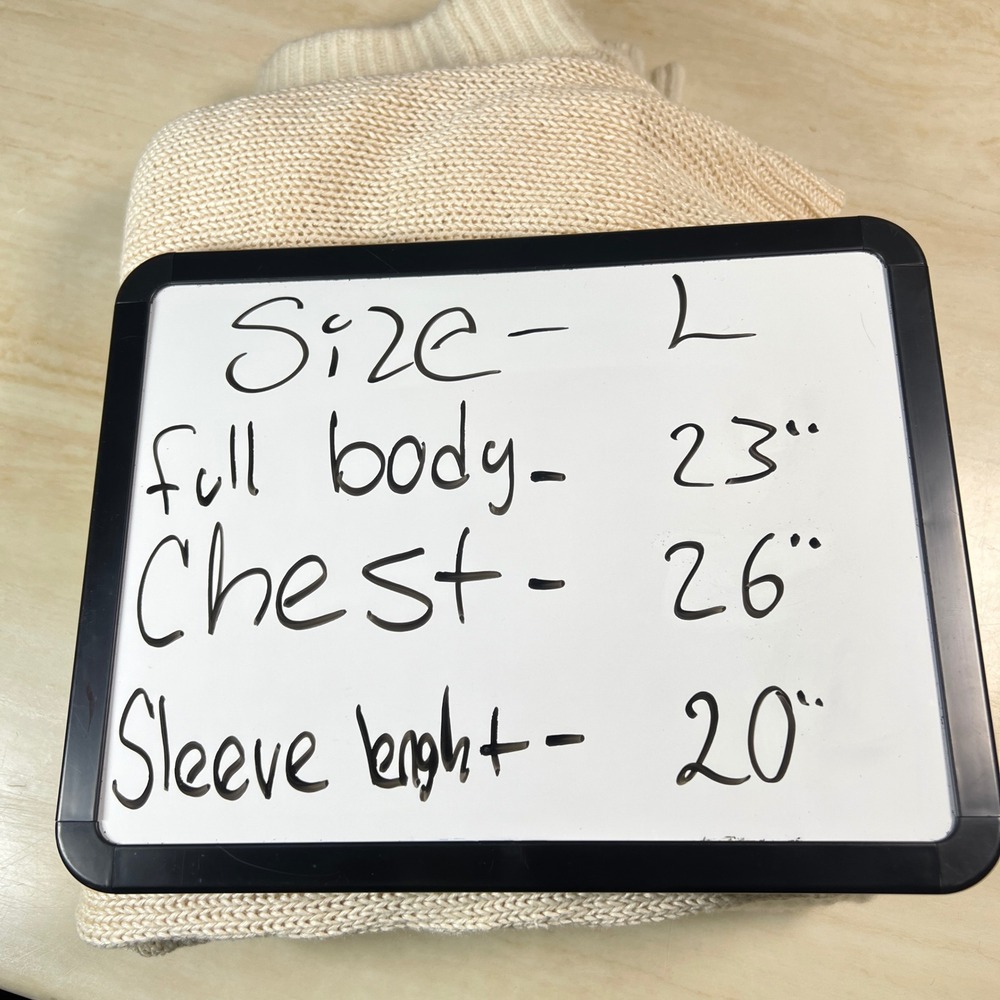 Size - L
full body - 23"
Chest - 26"
Sleeve lenght - 20"